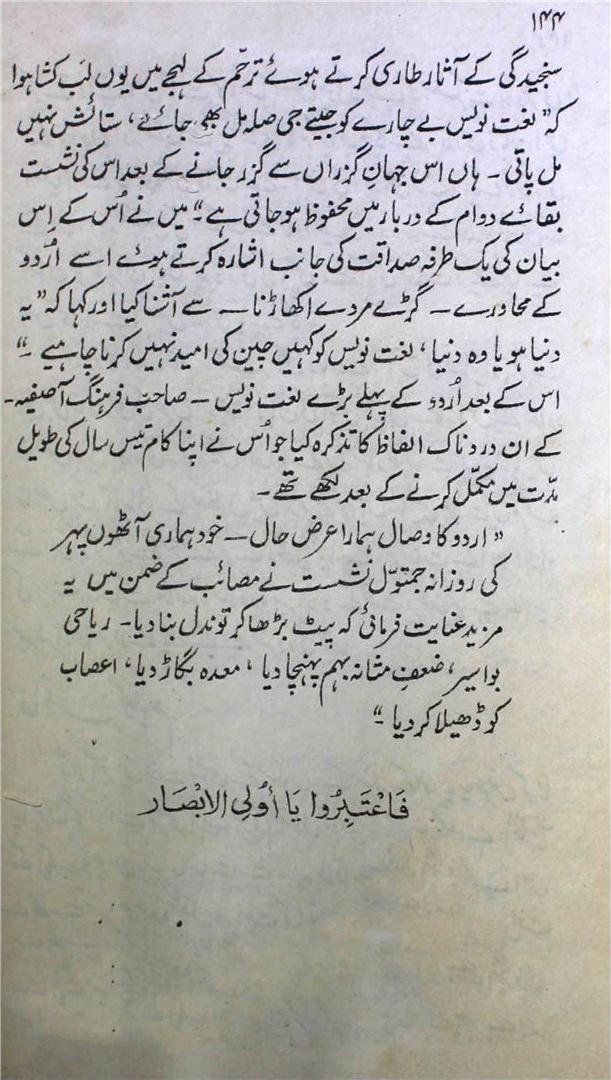 ۱۴۴
سنجیدگی کے آثار طاری کرتے ہوئے ترحّم کے لہجے میں یوں لب کشا ہوا
کہ ”لغت نویس بے چارے کو جیتے جی صلہ مل بھی جائے، ستائش نہیں
مل پاتی ۔ ہاں اس جہانِ گزراں سے گزر جانے کے بعد اس کی نشست
بقائے دوام کے دربار میں محفوظ ہو جاتی ہے۔“ میں نے اُس کے اِس
بیان کی یک طرفہ صداقت کی جانب اشارہ کرتے ہوئے اسے اُردو
کے محاورے ــ گڑے مردے اکھاڑنا ــ سے آشنا کیا اور کہا کہ ”یہ
دنیا ہو یا وہ دنیا، لغت نویس کو کہیں چین کی امید نہیں کرنا چاہیے ۔“
اس کے بعد اُردو کے پہلے بڑے لغت نویس ــ صاحب فرہنگ آصفیہ ــ
کے ان دردناک الفاظ کا تذکرہ کیا جو اُس نے اپنا کام تیس سال کی طویل
مدّت میں مکمّل کرنے کے بعد لکھے تھے ۔
”اردو کا وصال ہمارا عرض حال ــ خود ہماری آٹھوں پہر
کی روزانہ جمتوّل نشست نے مصائب کے ضمن میں یہ
مزید عنایت فرمائی کہ پیٹ بڑھا کر توندل بنا دیا۔ ریاحی
بواسیر، ضعفِ مثانہ بہم پہنچا دیا، معدہ بگاڑ دیا، اعصاب
کو ڈھیلا کر دیا ۔“
فَاعْتَبِرُوا يَا أُولِي الابْصَار